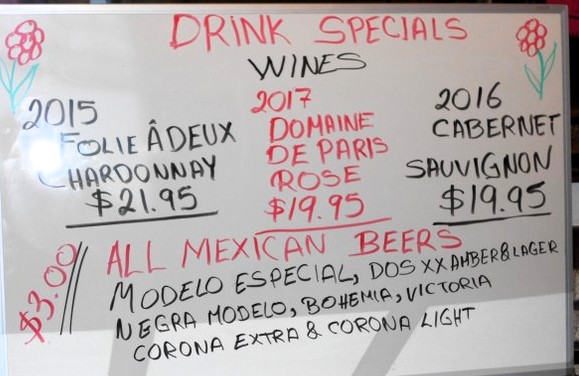 DRINK SPECIALS
WINES
2015
FOLIE ÂDEUX
CHARDONNAY
$21.95
2017
DOMAINE
DE PARIS
ROSE
$19.95
2016
CABERNET
SAUVIGNON
$19.95
$3.00
ALL MEXICAN BEERS
MODELO ESPECIAL, DOS XX AMBER & LAGER
NEGRA MODELO, BOHEMIA, VICTORIA
CORONA EXTRA & CORONA LIGHT